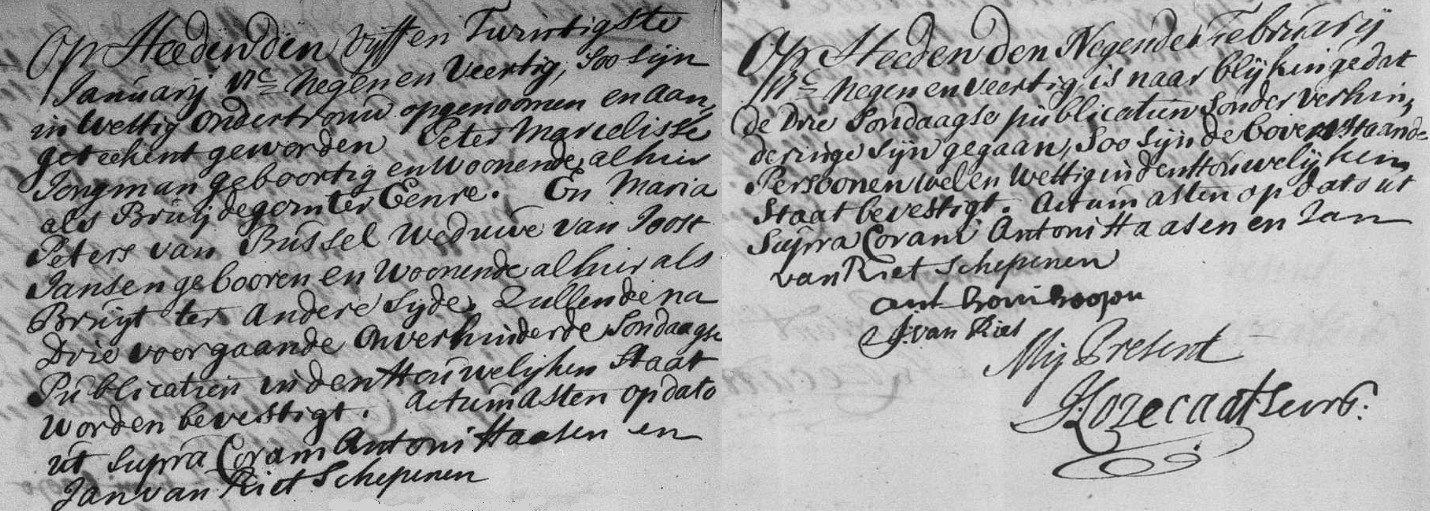 Op Heeden den vyff en Twintigste
Januarij 17C negen en Veertig, Soo Syn
in Wettig Ondertrouw opgenoomen en aan,
geteekent geworden Peter Marcelisse
Jongman geboortig en Woonende alhier
als Bruijdegom ter Eenre. En Maria
Peters van Bussel Weduwe van Joost
Jansen gebooren en Woonende alhier als
Bruyt ter Andere Syde, Zullende na
Drie voorgaande Onverhinderde Sondaagse
Publicatien in den Houwelyken Staat
Worden bevestigt. Actum Asten op dato
ut Supra Coram Antoni Haasen en
Jan van Riet Schepenen
Op Heeden den Negenden February
17C negen en Veertig is naar blykinge dat
de Drie Sondaagse publicatien Sonder verhin,
deringe Syn gegaan, Soo Syn de bovenstaande
Persoonen wel en Wettig in den Houwelyken
Staat bevestigt. Actum Asten op dato ut
Supra Coram Antoni Haasen en Jan
van Riet Schepenen
ant
J. van Riet
Mij Present
J: Lozecaat Secrs: